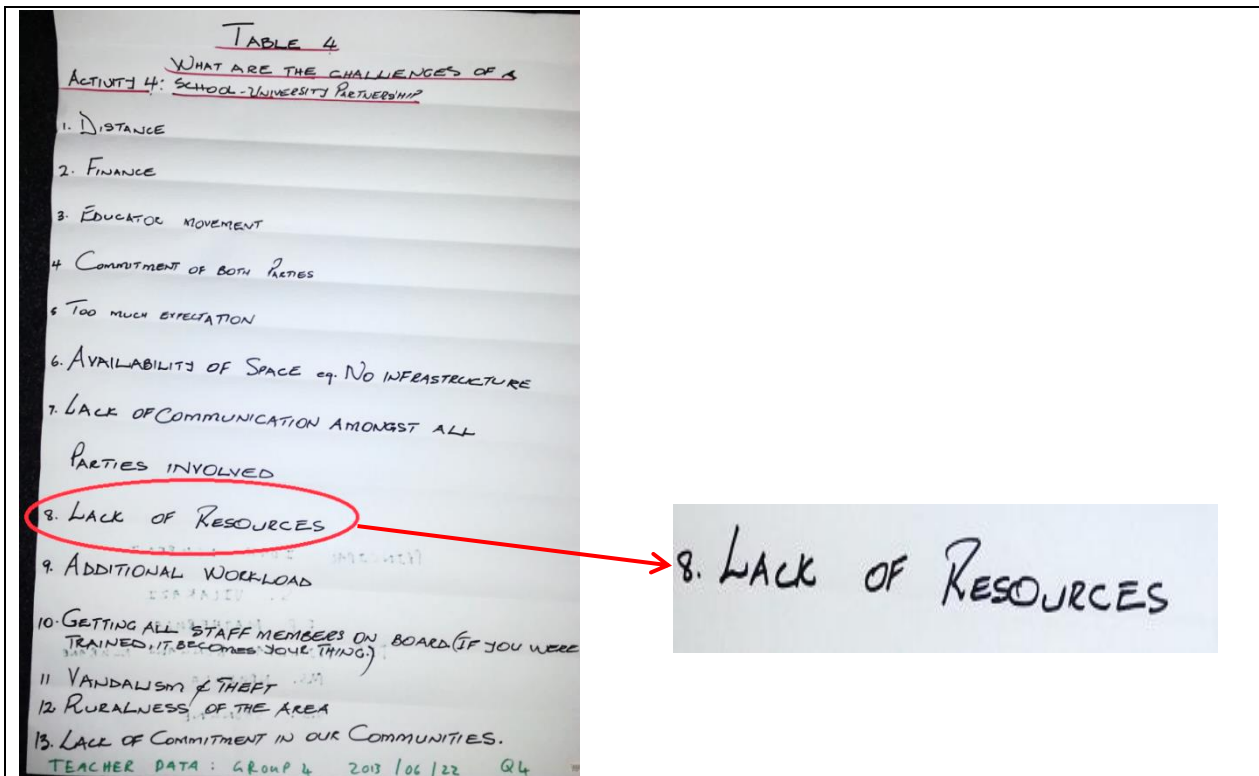 TABLE 4
WHAT ARE THE CHALLENGES OF A
ACTIVITY 4: SCHOOL-UNIVERSITY PARTNERSHIP
1. DISTANCE
2. FINANCE
3. EDUCATOR MOVEMENT
4 COMMITMENT OF BOTH PARTIES
5 TOO MUCH EXPECTATION
6. AVAILABILITY OF SPACE eg. NO INFRASTRUCTURE
7. LACK OF COMMUNICATION AMONGST ALL
PARTIES INVOLVED
8. LACK OF RESOURCES
9. ADDITIONAL WORKLOAD
10. GETTING ALL STAFF MEMBERS ON BOARD (IF YOU WERE
TRAINED, IT BECOMES YOUR THING)
11 VANDALISM & THEFT
12 RURALNESS OF THE AREA
13. LACK OF COMMITMENT IN OUR COMMUNITIES.
TEACHER DATA: GROUP 4 2013/06/22 Q4
8. LACK OF RESOURCES